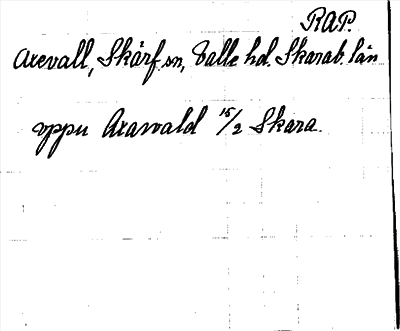 RAP.
Axevall, Skärf sn, Valle hd. Skarab. län
vppu Axawald 15/2 Skara.